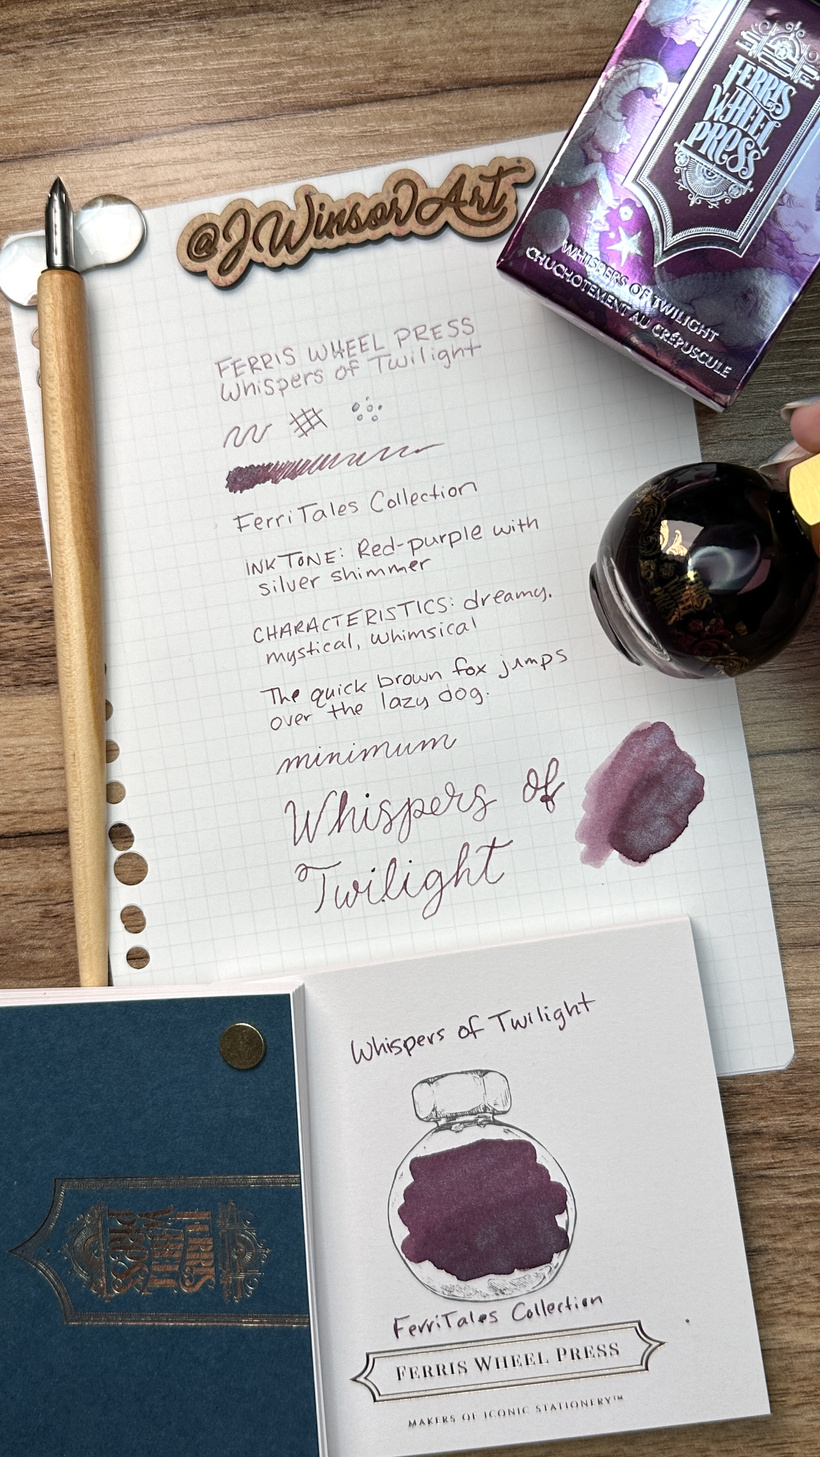 @JWinsorArt
FERRIS
WHEEL
PRESS
WHISPERS OF TWILIGHT
CHUCHOTEMENT AU CRÉPUSCULE
FERRIS WHEEL PRESS
Whispers of Twilight
FerriTales Collection
INK TONE: Red-purple with
silver shimmer
CHARACTERISTICS: dreamy,
mystical, whimsical
The quick brown fox jumps
over the lazy dog.
minimum
Whispers of
Twilight
Whispers of Twilight
FerriTales Collection
FERRIS WHEEL PRESS
MAKERS OF ICONIC STATIONERY™
FERRIS
WHEEL
PRESS